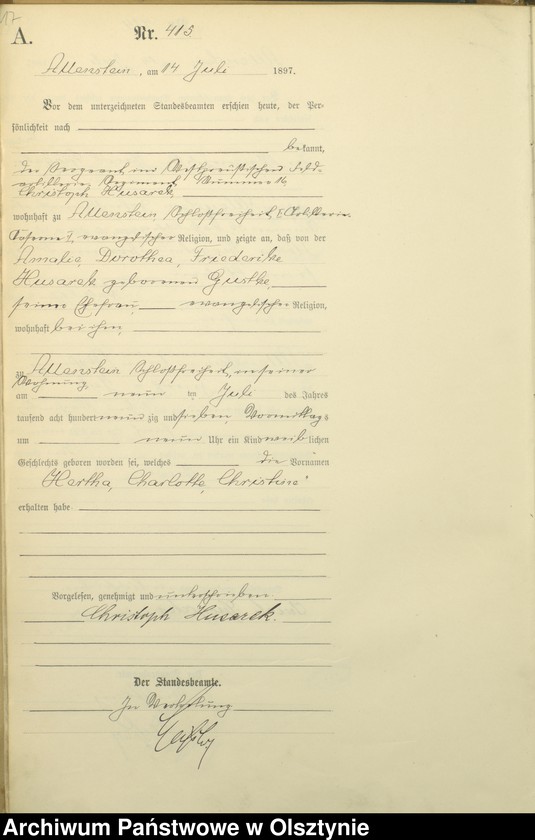 17
A.
Nr. 415
Allenstein, am 14 Juli 1897.
Vor dem unterzeichneten Standesbeamten erschien heute, der Per-
sönlichkeit nach
bekannt,
der Sergeant im Westpreußischen Feld-
artillerie Regiment Nummer 16
Christoph Husarek,
wohnhaft zu Allenstein Schloßfreiheit, Artillerie
Caserne I, evangelischer Religion, und zeigte an, daß von der
Amalie, Dorothea, Friederike
Husarek geborenen Gustke,
seiner Ehefrau, evangelischer Religion,
wohnhaft bei ihm,
zu Allenstein Schloßfreiheit, in seiner
Wohnung,
am neun ten Juli des Jahres
tausend acht hundert neun zig und sieben, Vormittags
um neun Uhr ein Kind weiblichen
Geschlechts geboren worden sei, welches die Vornamen
Hertha, Charlotte, Christine
erhalten habe
Vorgelesen, genehmigt und unterschrieben
Christoph Husarek.
Der Standesbeamte.
In Vertretung
Archiwum Państwowe w Olsztynie